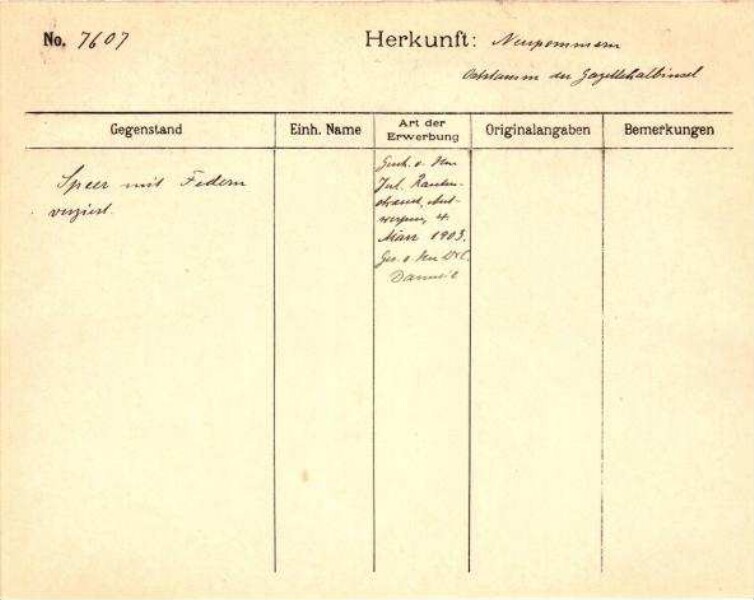 No. 7607
Herkunft: Neupommern
der Gazellehalbinsel
Gegenstand
Einh. Name
Art der
Erwerbung
Originalangaben
Bemerkungen
Speer mit Federn
verziert.
Gesch. v. Herrn
Jul. Rauten-
strauch, Ant-
werpen, 4.
März 1903.
Ges. v. Herrn